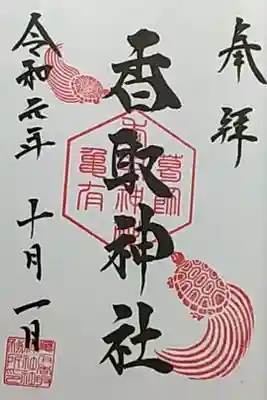 奉拝
香取神社
亀有
葛飾
令和元年
十月一日